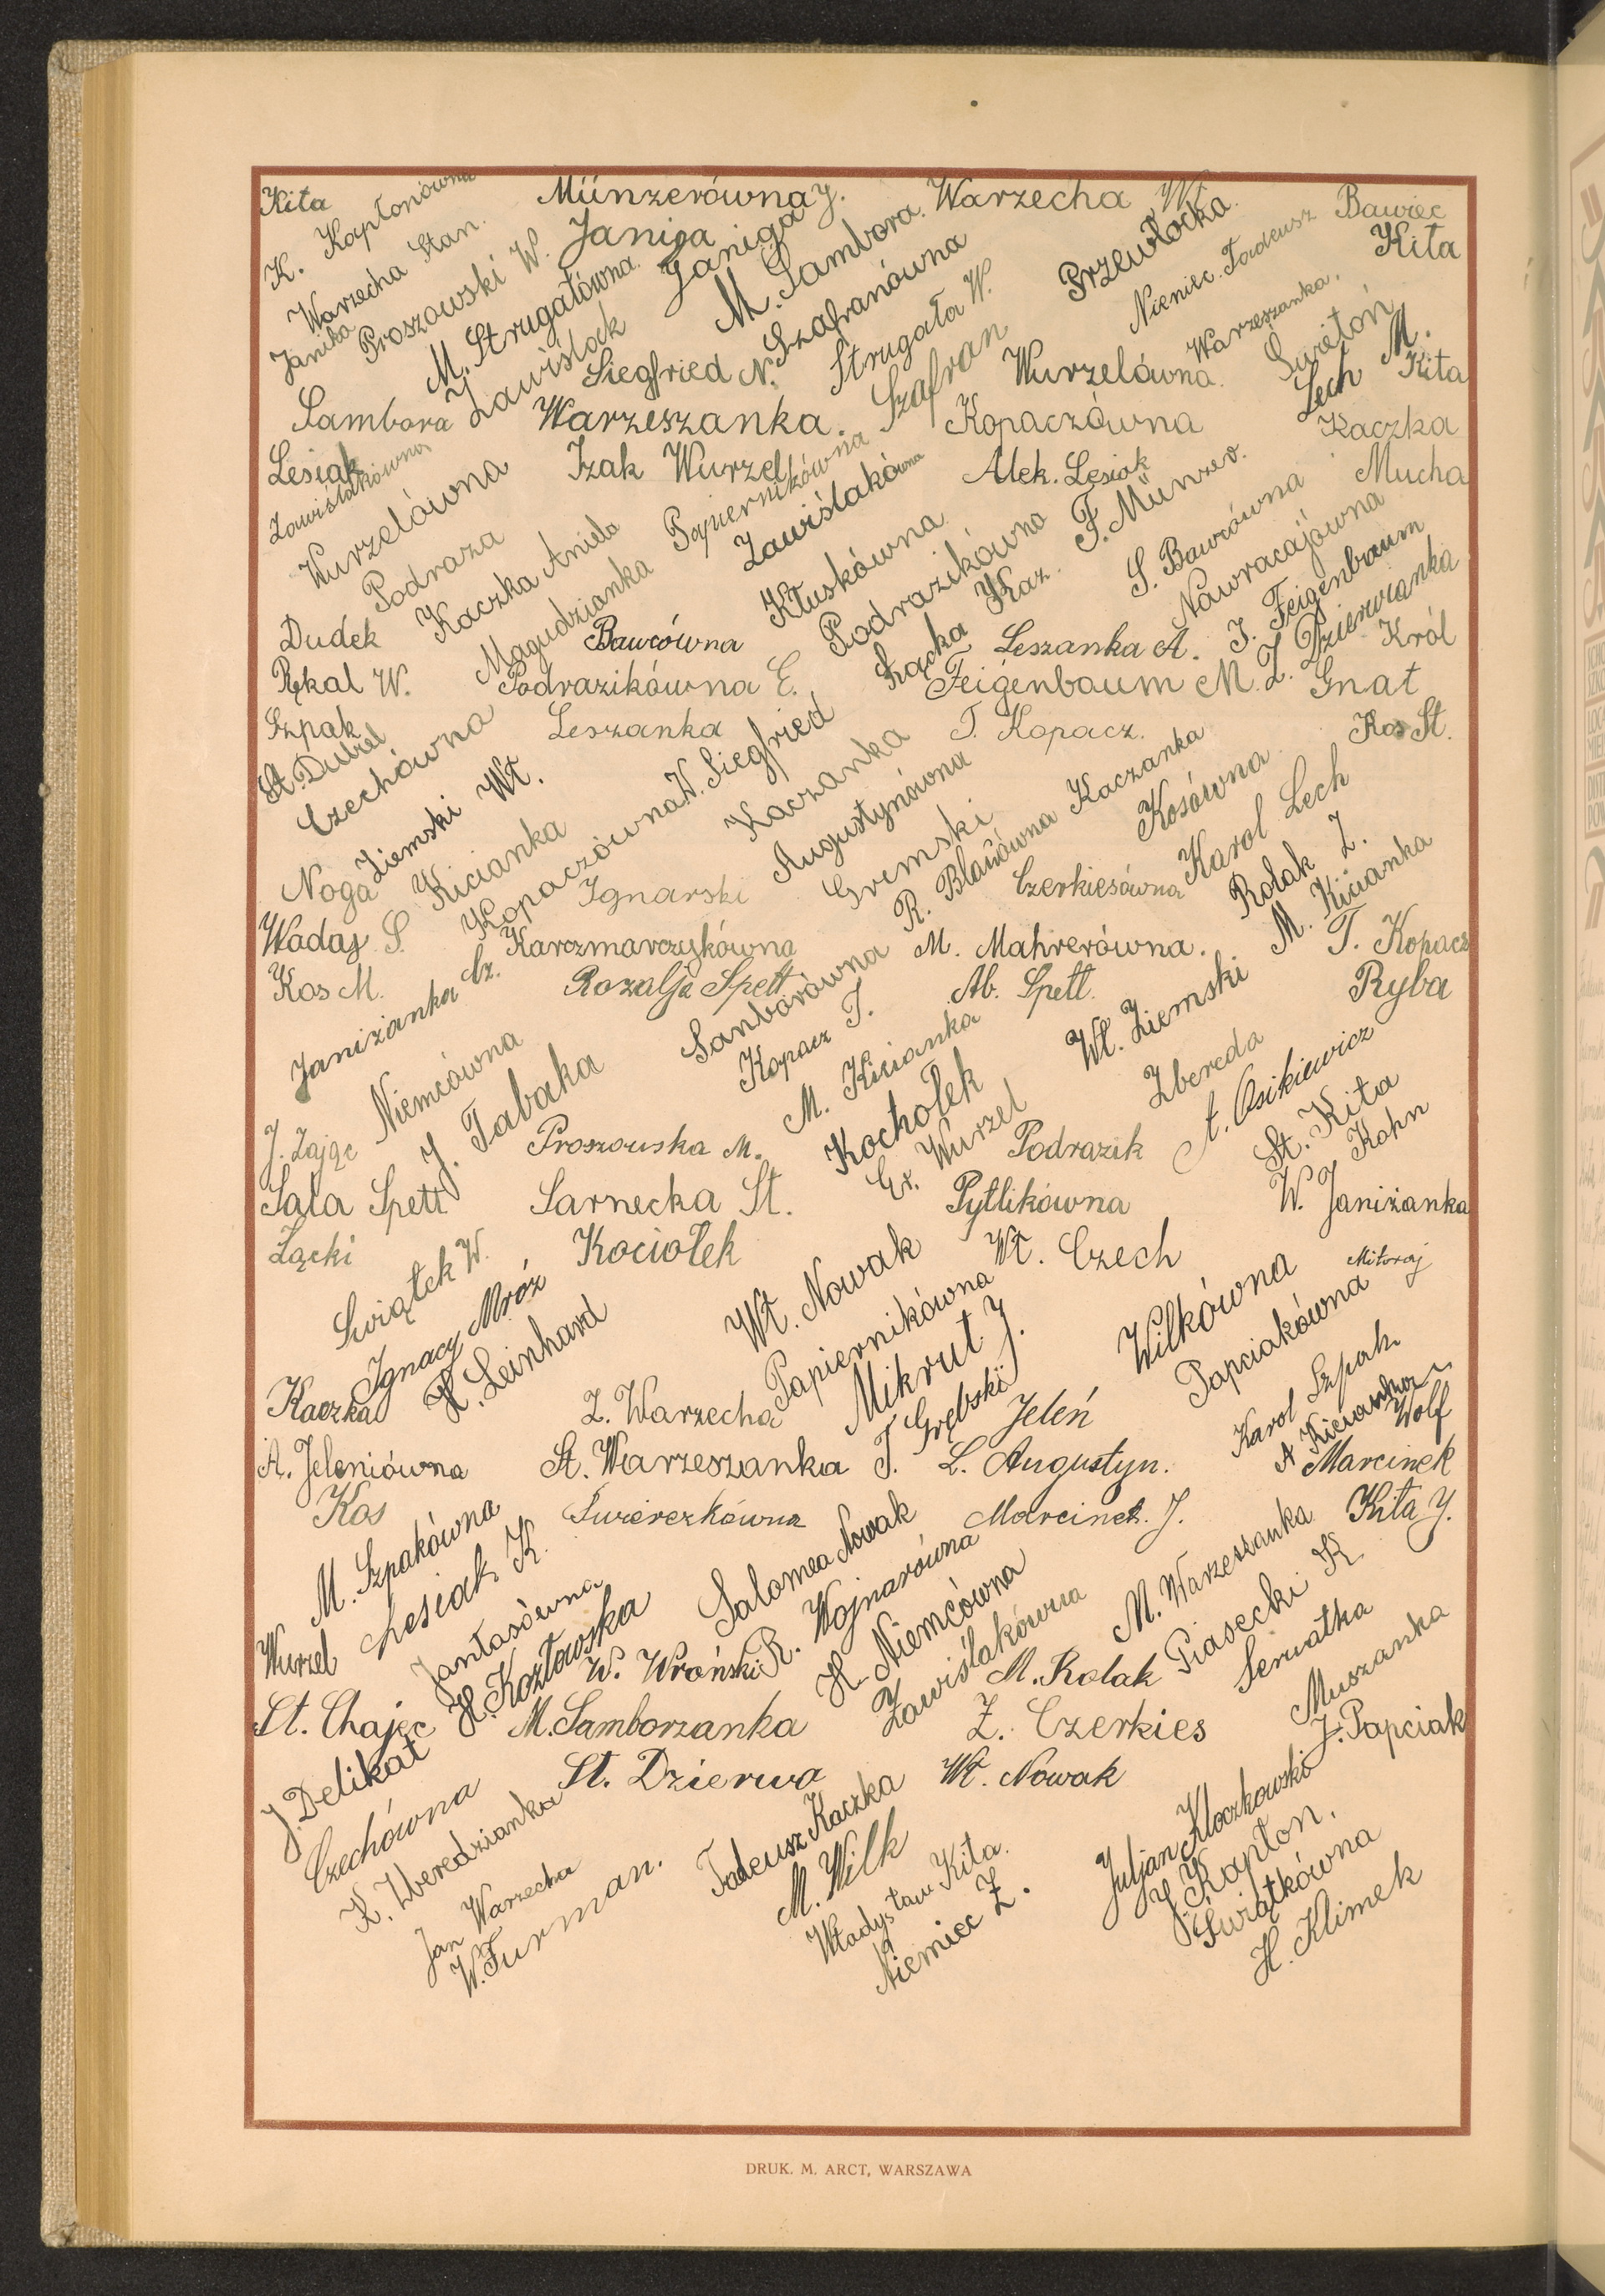 Kita
K. Kapłonówna
Münzerówna J.
Warzecha Wł
Bawiec
Warzecha Stan.
Proszowski W.
Janiga
Janiga
M. Sambora.
Przewłocka
Niemiec. Tadeusz
Kita
Janika
M. Strugałówna.
Zawiślack
Siegfried N.
Szafranówna
Strugała W.
Szafran
Wurzelówna.
Warzeszanka.
Świętoń
Lech M.
Kita
Sambora
Warzeszanka.
Kopaczówna
Kaczka
Lesiak
Zawiślakówna
Izak Wurzel
Papiernikówna
Zawiślakówna
Alek. Lesiak
Mucha
Wurzelówna
Podraza
Kaczka Aniela
Magudzianka
Kłuskówna
Podrazikówna
F. Münzer.
S. Bawcówna
Nawracajówna
Dudek
Bawcówna
Łącka Kaz.
Leszanka A.
I. Feigenbaum
Z. Dzierwianka
Król
Rękal W.
Podrazikówna E.
Feigenbaum M.
Gnat
Szpak
St. Dudzel
Czechówna
Leszanka
W. Siegfried
T. Kopacz.
Kos St.
Noga
Ziemski Wł.
Kicianka
Kopaczówna
Ignarski
Kaczanka
Augustynówna
Gremski
R. Blauówna
Kaczanka
Kosówna
Karol Lech
Wadaj S.
Karczmarczykówna
Czerkiesówna
Rolak Z.
M. Kicianka
Kos M.
Janiżanka Cz.
Rozalja Spett
Samborówna
M. Mahrerówna.
T. Kopacz
Kopacz T.
Ab. Spett.
Wł. Ziemski
Ryba
J. Zając
Niemcówna
J. Tabaka
Proszowska M.
M. Kicianka
Kochołek
Gr. Wurzel
Podrazik
Zbereda
A. Osikiewicz
St. Kita
Kohn
Sala Spett
Sarnecka St.
Pytlikówna
W. Janiżanka
Łącki
Świątek W.
Kociołek
Wł. Nowak
Wł. Czech
Mitoraj
Kaczka
Ignacy Mróz
H. Leinhard
Z. Warzecha
Papiernikówna
Mikrut J.
Wilkówna
Papciakówna
A. Jeleniówna
St. Warzeszanka
T. Grębski
Jeleń
L. Augustyn.
Karol Szpak
A Kicianka
Wolf
Marcinek
Kos
M. Szpakówna
Świerczkówna
Salomea Nowak
Marcinek. J.
Kita J.
Wurzel
Lesiak K.
Jantasówna
H. Kozłowska
W. Wroński
R. Wojnarówna
H. Niemcówna
Zawiślakówna
M. Rolak
M. Warzeszanka
Piasecki K
Serwatka
Muszanka
St. Chajec
M. Samborzanka
Z. Czerkies
J. Papciak
J. Delikat
Czechówna
St. Dzierwa
Wł. Nowak
K. Zberedzianka
Jan Warzecha
W. Furman.
Tadeusz Kaczka
M. Wilk
Władysław Kita.
Niemiec Z.
Juljan Kloczkowski
J. Kapłon.
Świątkówna
H. Klimek
DRUK. M. ARCT, WARSZAWA